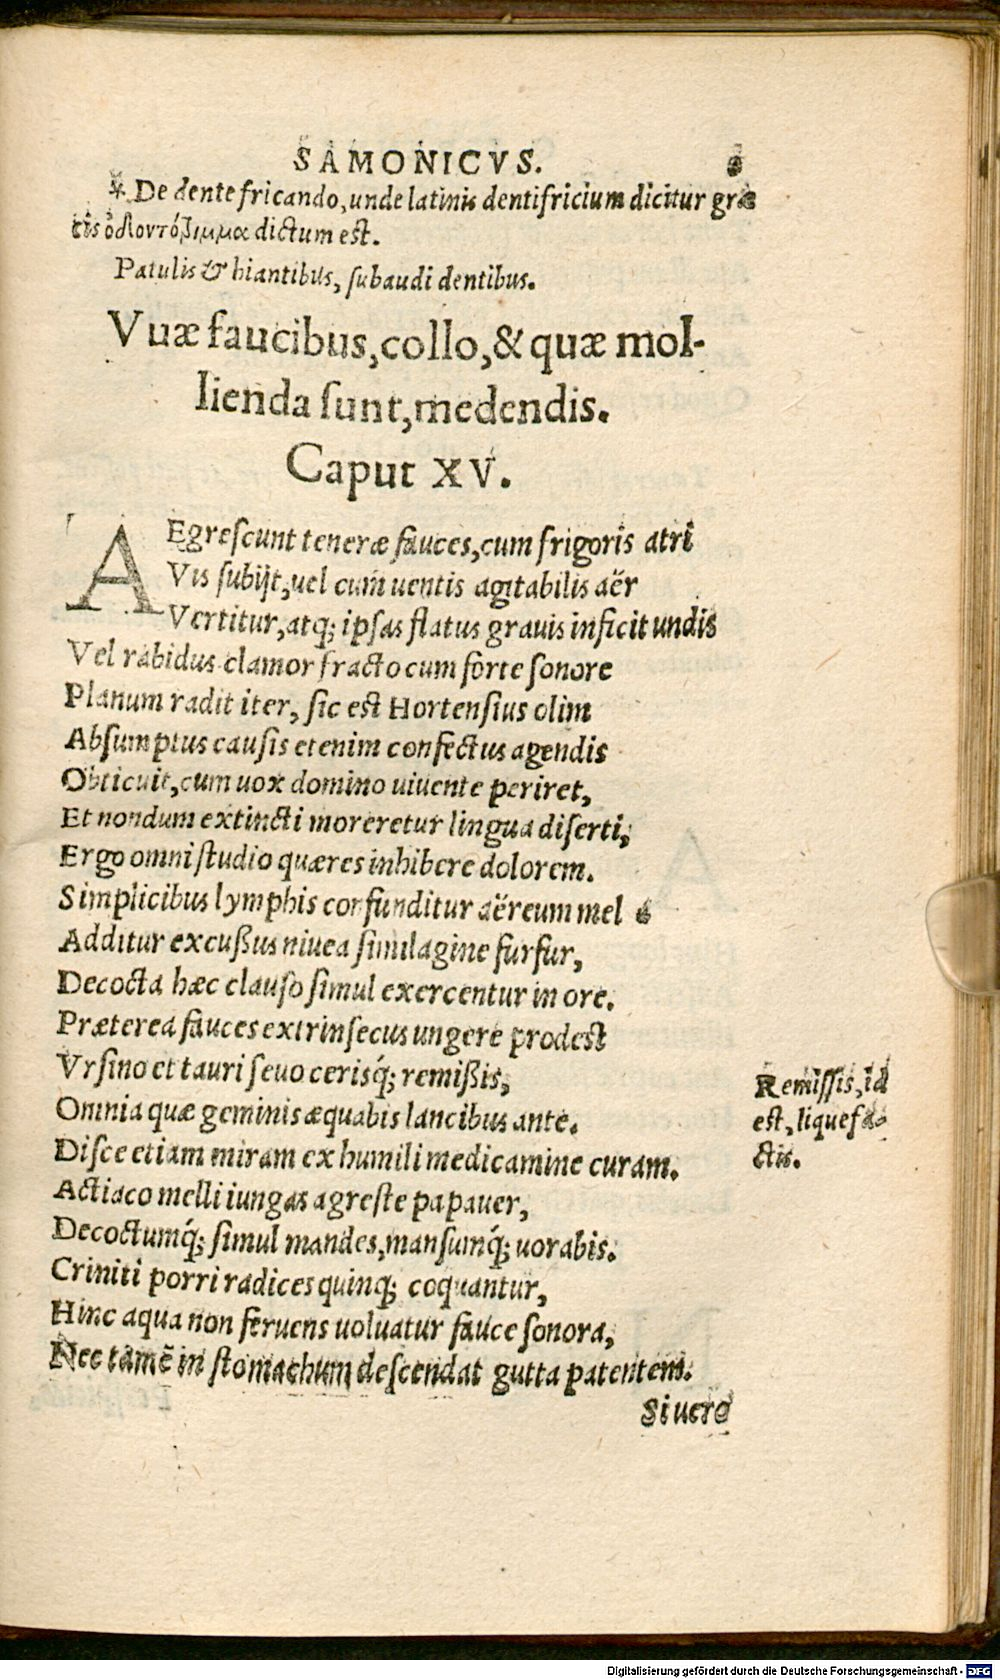 SAMONICVS.
* De dente fricando, unde latinis dentifricium dicitur græ
cis ὀδοντότριμμα dictum est.
Patulis & hiantibus, subaudi dentibus.
Vuæ faucibus, collo, & quæ mol-
lienda sunt, medendis.
Caput XV.
AEgrescunt teneræ fauces, cum frigoris atri
Vis subijt, uel cum uentis agitabilis aër
Vertitur, atq; ipsas flatus grauis inficit undis
Vel rabidus clamor fracto cum forte sonore
Planum radit iter, sic est Hortensius olim
Absumptus causis etenim confectus agendis
Obticuit, cum uox domino uiuente periret,
Et nondum extincti moreretur lingua diserti,
Ergo omni studio quæres inhibere dolorem.
Simplicibus lymphis confunditur aëreum mel
Additur excußus niuea similagine furfur,
Decocta hæc clauso simul exercentur in ore.
Præterea fauces extrinsecus ungere prodest
Vrsino et tauri seuo cerisq́; remißis,
Omnia quæ geminis æquabis lancibus ante.
Disce etiam miram ex humili medicamine curam.
Actiaco melli iungas agreste papauer,
Decoctumq́; simul mandes, mansumq́; uorabis.
Criniti porri radices quinq; coquantur,
Hinc aqua non feruens uoluatur fauce sonora,
Nec tamē in stomachum descendat gutta patentem.
Si uero
Remissis, id
est, liquefa-
ctis.
Digitalisierung gefördert durch die Deutsche Forschungsgemeinschaft - DFG